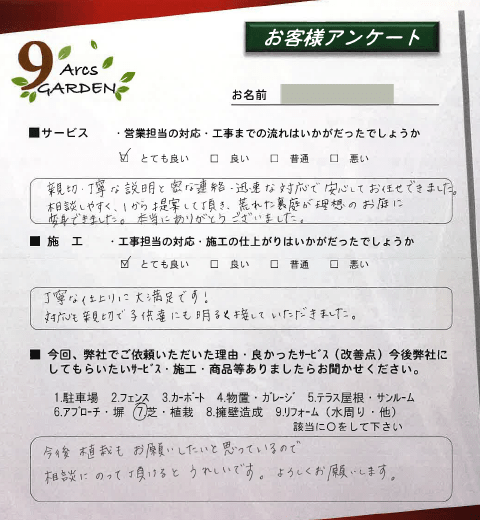 お客様アンケート
9 Arcs GARDEN
お名前
■サービス ・営業担当の対応・工事までの流れはいかがだったでしょうか
☑ とても良い □ 良い □ 普通 □ 悪い
親切・丁寧な説明と密な連絡・迅速な対応で安心してお任せできました。
相談しやすく、1から提案して頂き、荒れた裏庭が理想のお庭に
変身できました。本当にありがとうございました。
■施 工 ・工事担当の対応・施工の仕上がりはいかがだったでしょうか
☑ とても良い □ 良い □ 普通 □ 悪い
丁寧な仕上りに大満足です!
対応も親切で子供達にも明るく接していただきました。
■今回、弊社でご依頼いただいた理由・良かったｻｰﾋﾞｽ（改善点）今後弊社に
してもらいたいｻｰﾋﾞｽ・施工・商品等ありましたらお聞かせください。
1.駐車場 2.フェンス 3.カーポート 4.物置・ガレージ 5.テラス屋根・サンルーム
6.アプローチ・塀 ⑦芝・植栽 8.擁壁造成 9.リフォーム（水周り・他）
該当に〇をして下さい
今後 植栽も お願いしたいと思っているので
相談に のって頂けると うれしいです。よろしくお願いします。